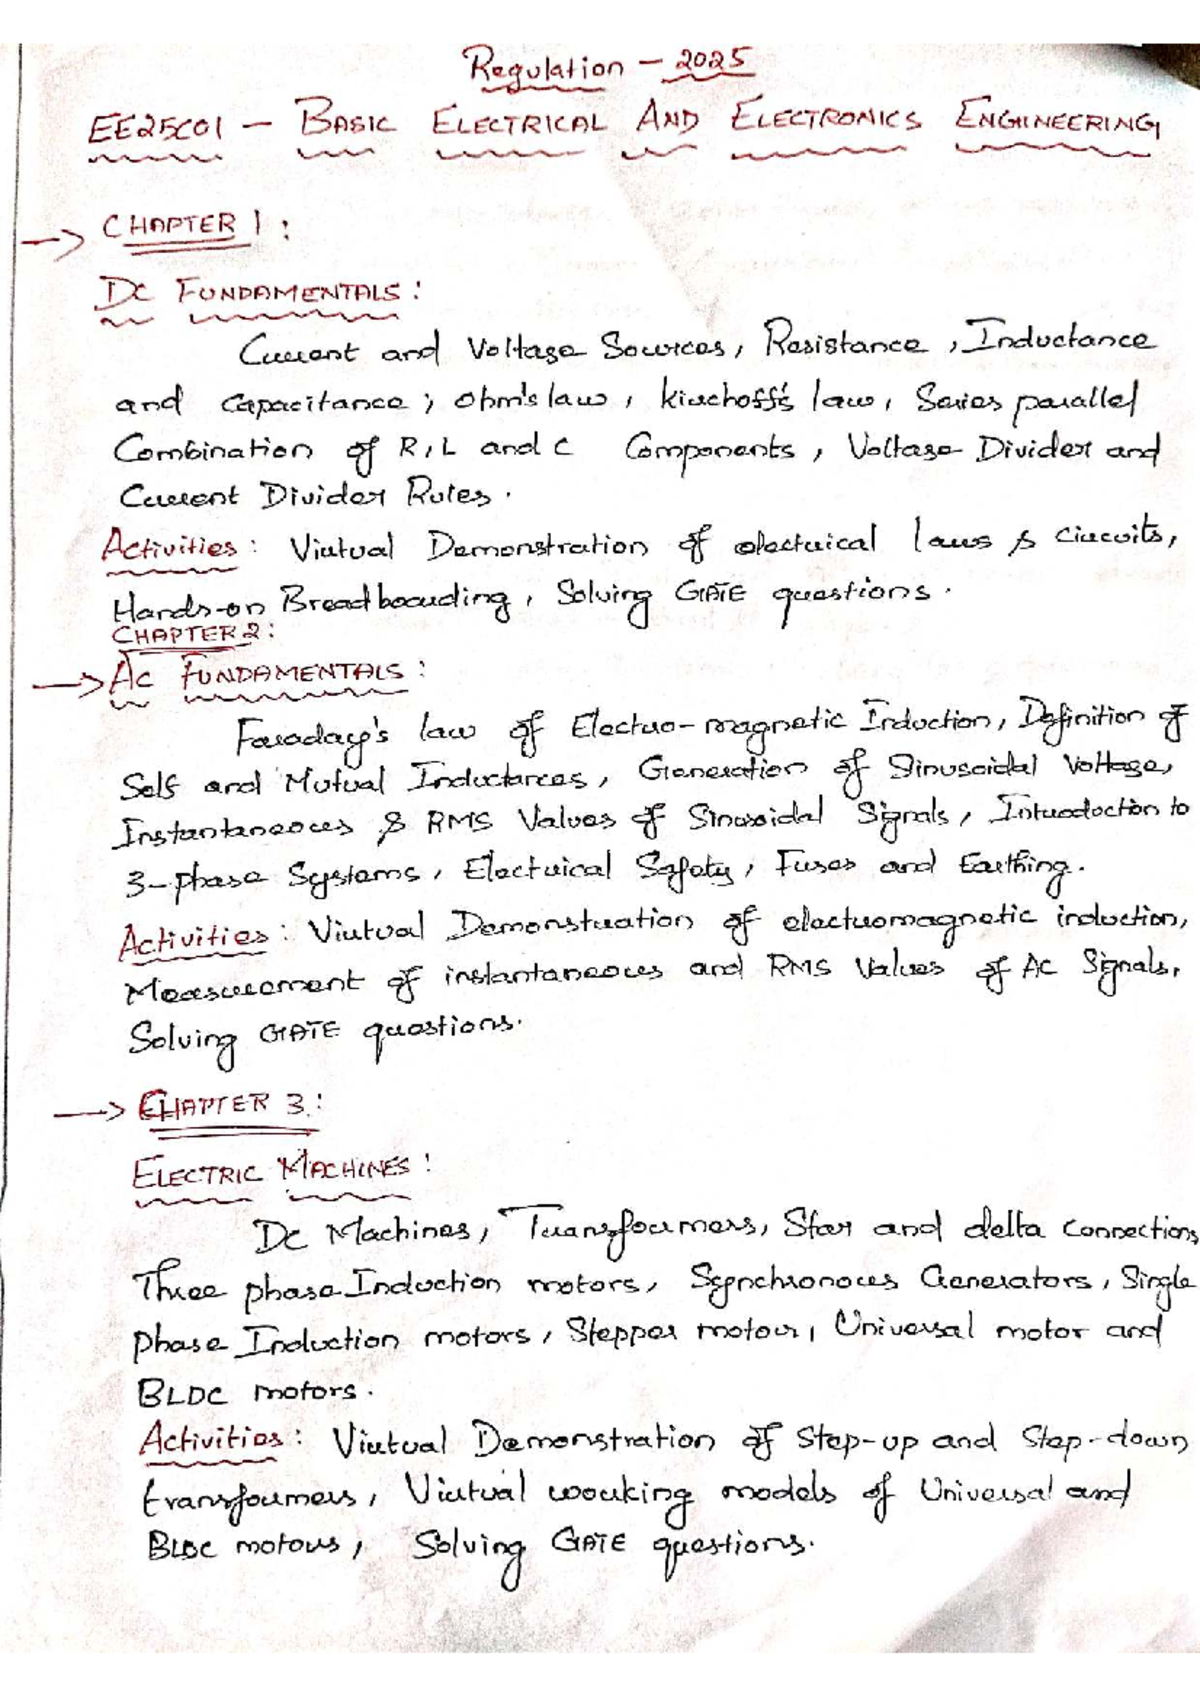 Regulation - 2025
EE25C01 - BASIC ELECTRICAL AND ELECTRONICS ENGINEERING
→ CHAPTER 1:
DC FUNDAMENTALS:
Current and Voltage Sources, Resistance, Inductance
and Capacitance; Ohm's law, Kirchoff's law, Series parallel
Combination of R, L and C Components, Voltage Divider and
Current Divider Rules.
Activities: Virtual Demonstration of electrical laws & circuits,
Hands-on Breadboarding, Solving GATE questions.
CHAPTER 2:
→ AC FUNDAMENTALS:
Faraday's law of Electro-magnetic Induction, Definition of
Self and Mutual Inductances, Generation of Sinusoidal Voltage,
Instantaneous & RMS Values of Sinusoidal Signals, Introduction to
3-phase Systems, Electrical Safety, Fuses and Earthing.
Activities: Virtual Demonstration of electromagnetic induction,
Measurement of instantaneous and RMS Values of AC Signals,
Solving GATE questions.
→ CHAPTER 3:
ELECTRIC MACHINES:
DC Machines, Transformers, Star and delta connections
Three phase Induction motors, Synchronous Generators, Single
phase Induction motors, Stepper motor, Universal motor and
BLDC motors.
Activities: Virtual Demonstration of Step-up and Step-down
transformers, Virtual working models of Universal and
BLDC motors, Solving GATE questions.